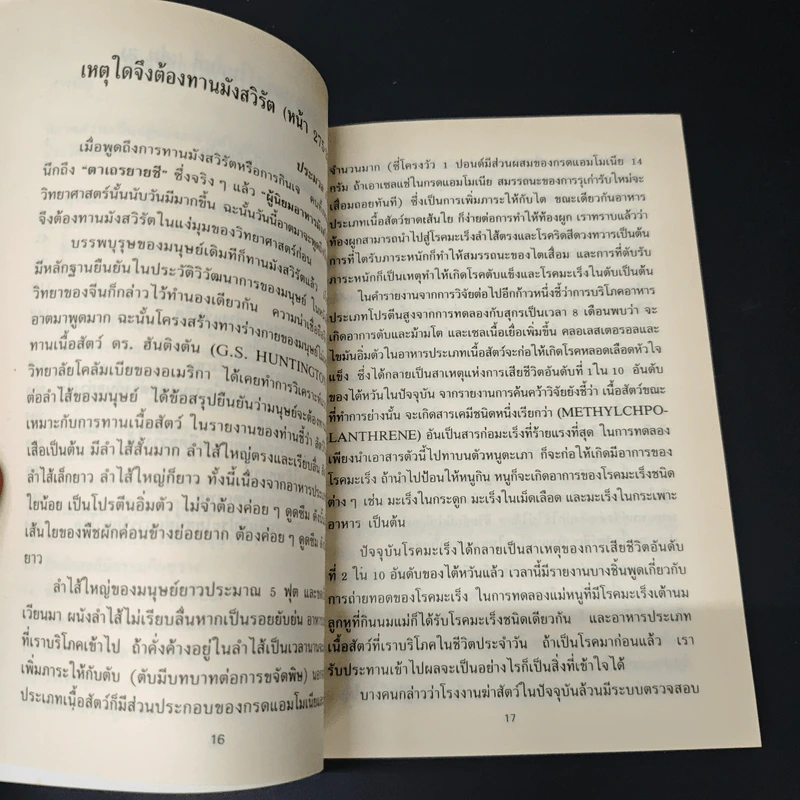 เหตุใดจึงต้องทานมังสวิรัต (หน้า 275-
เมื่อพูดถึงการทานมังสวิรัตหรือการกินเจ
นึกถึง "ตาเถรยายชี" ซึ่งจริง ๆ แล้ว "ผู้นิยมอาหารมัง
วิทยาศาสตร์นั้นนับวันมีมากขึ้น ฉะนั้นวันนี้อาตมาจะพูด
จึงต้องทานมังสวิรัตในแง่มุมของวิทยาศาสตร์ก่อน
บรรพบุรุษของมนุษย์เดิมทีก็ทานมังสวิรัตแล้ว
มีหลักฐานยืนยันในประวัติวิวัฒนาการของมนุษย์
วิทยาของจีนก็กล่าวไว้ทำนองเดียวกัน ความน่าเชื่อถือ
อาตมาพูดมาก ฉะนั้นโครงสร้างทางร่างกายของมนุษย์
ทานเนื้อสัตว์ ดร. ฮันติงตัน (G.S. HUNTINGTON
วิทยาลัยโคลัมเบียของอเมริกา ได้เคยทำการวิเคราะห์
ต่อลำไส้ของมนุษย์ ได้ข้อสรุปยืนยันว่ามนุษย์จะต้อง
เหมาะกับการทานเนื้อสัตว์ ในรายงานของท่านชี้ว่า
เสือเป็นต้น มีลำไส้สั้นมาก ลำไส้ใหญ่ตรงและเรียบลื่น
ลำไส้เล็กยาว ลำไส้ใหญ่ก็ยาว ทั้งนี้เนื่องจากอาหารประเภท
ใยน้อย เป็นโปรตีนอิ่มตัว ไม่จำต้องค่อย ๆ ดูดซึม
เส้นใยของพืชผักค่อนข้างย่อยยาก ต้องค่อย ๆ ดูดซึม
ยาว
ลำไส้ใหญ่ของมนุษย์ยาวประมาณ 5 ฟุต และ
เวียนมา ผนังลำไส้ไม่เรียบลื่นหากเป็นรอยยับย่น
ที่เราบริโภคเข้าไป ถ้าคั่งค้างอยู่ในลำไส้เป็นเวลานาน
เพิ่มภาระให้กับตับ (ตับมีบทบาทต่อการขจัดพิษ)
ประเภทเนื้อสัตว์ก็มีส่วนประกอบของกรดแอมโมเนีย
16
จำนวนมาก (ซี่โครงวัว 1 ปอนด์มีส่วนผสมของกรดแอมโมเนีย 14
กรัม ถ้าเอาเซลแช่ในกรดแอมโมเนีย สมรรถนะของการรุเก่ารับใหม่จะ
เสื่อมถอยทันที) ซึ่งเป็นการเพิ่มภาระให้กับไต ขณะเดียวกันอาหาร
ประเภทเนื้อสัตว์ขาดเส้นใย ก็ง่ายต่อการทำให้ท้องผูก เราทราบแล้วว่า
ท้องผูกสามารถนำไปสู่โรคมะเร็งลำไส้ตรงและโรคริดสีดวงทวารเป็นต้น
การที่ไตรับภาระหนักก็ทำให้สมรรถนะของไตเสื่อม และการที่ตับรับ
ภาระหนักก็เป็นเหตุทำให้เกิดโรคตับแข็งและโรคมะเร็งในตับเป็นต้น
ในคำรายงานจากการวิจัยต่อไปอีกก้าวหนึ่งชี้ว่าการบริโภคอาหาร
ประเภทโปรตีนสูงจากการทดลองกับสุกรเป็นเวลา 8 เดือนพบว่า จะ
เกิดอาการตับและม้ามโต และเซลเนื้อเยื่อเพิ่มขึ้น คลอเลสเตอรอลและ
ไขมันอิ่มตัวในอาหารประเภทเนื้อสัตว์จะก่อให้เกิดโรคหลอดเลือดหัวใจ
แข็ง ซึ่งได้กลายเป็นสาเหตุแห่งการเสียชีวิตอันดับที่ 1 ใน 10 อันดับ
ของไต้หวันในปัจจุบัน จากรายงานการค้นคว้าวิจัยยังชี้ว่า เนื้อสัตว์ขณะ
ที่ทำการย่างนั้น จะเกิดสารเคมีชนิดหนึ่งเรียกว่า (METHYLCHPO-
LANTHRENE) อันเป็นสารก่อมะเร็งที่ร้ายแรงที่สุด ในการทดลอง
เพียงนำเอาสารตัวนี้ไปทาบนตัวหนูตะเภา ก็จะก่อให้เกิดมีอาการของ
โรคมะเร็ง ถ้านำไปป้อนให้หนูกิน หนูก็จะเกิดอาการของโรคมะเร็งชนิด
ต่าง ๆ เช่น มะเร็งในกระดูก มะเร็งในเม็ดเลือด และมะเร็งในกระเพาะ
อาหาร เป็นต้น
ปัจจุบันโรคมะเร็งได้กลายเป็นสาเหตุของการเสียชีวิตอันดับ
ที่ 2 ใน 10 อันดับของไต้หวันแล้ว เวลานี้มีรายงานบางชิ้นพูดเกี่ยวกับ
การถ่ายทอดของโรคมะเร็ง ในการทดลองแม่หนูที่มีโรคมะเร็งเต้านม
ลูกหนูที่กินนมแม่ก็ได้รับโรคมะเร็งชนิดเดียวกัน และอาหารประเภท
เนื้อสัตว์ที่เราบริโภคในชีวิตประจำวัน ถ้าเป็นโรคมาก่อนแล้ว เรา
รับประทานเข้าไปผลจะเป็นอย่างไรก็เป็นสิ่งที่เข้าใจได้
บางคนกล่าวว่าโรงงานฆ่าสัตว์ในปัจจุบันล้วนมีระบบตรวจสอบ
17